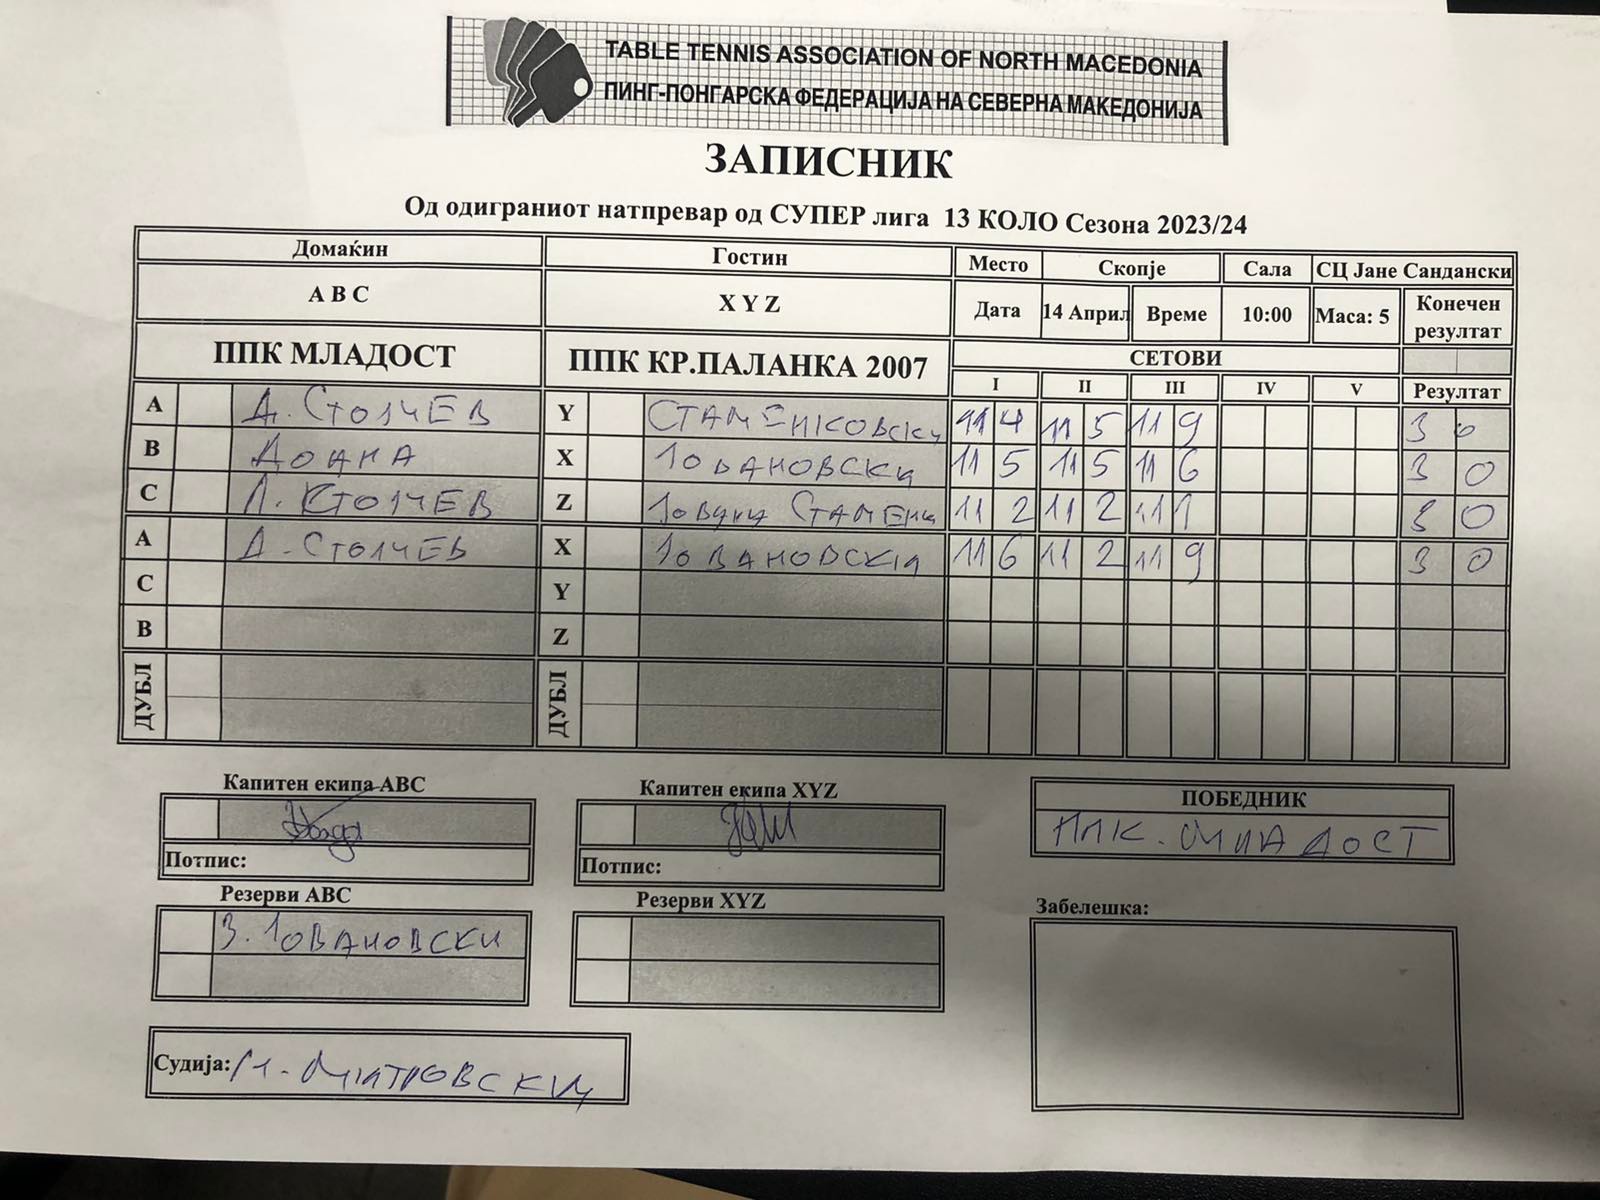 TABLE TENNIS ASSOCIATION OF NORTH MACEDONIA
ПИНГ-ПОНГАРСКА ФЕДЕРАЦИЈА НА СЕВЕРНА МАКЕДОНИЈА
ЗАПИСНИК
Од одиграниот натпревар од СУПЕР лига 13 КОЛО Сезона 2023/24
Домаќин Гостин Место Скопје Сала СЦ Јане Сандански
A B C X Y Z Дата 14 Април Време 10:00 Маса: 5 Конечен резултат
ППК МЛАДОСТ ППК КР.ПАЛАНКА 2007 СЕТОВИ
I II III IV V Резултат
A Д. СТОЈЧЕВ Y СТАМЕНКОВСКИ 11 4 11 5 11 9 3 0
B ДОАНА X ЈОВАНОВСКИ 11 5 11 5 11 6 3 0
C Л. СТОЈЧЕВ Z 11 2 11 2 11 1 3 0
A Д. СТОЈЧЕВ X ЈОВАНОВСКИ 11 6 11 2 11 9 3 0
C Y
B Z
ДУБЛ ДУБЛ
Капитен екипа ABC Капитен екипа XYZ ПОБЕДНИК
ППК. МЛАДОСТ
Потпис: Потпис:
Резерви ABC Резерви XYZ Забелешка:
З. ЈОВАНОВСКИ
Судија: М. МИТРОВСКИ